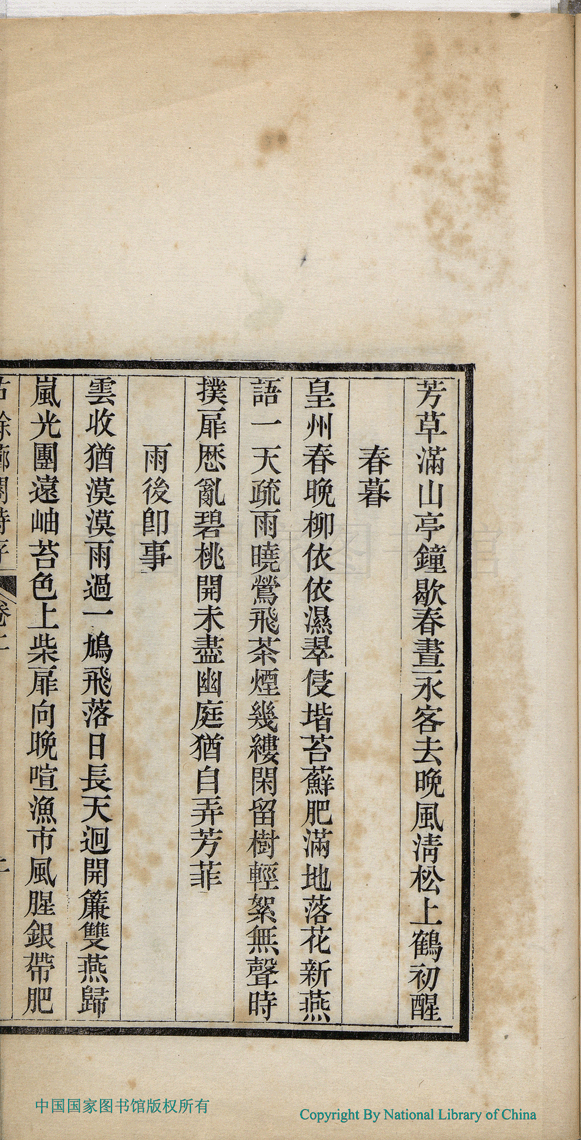 芳草滿山亭鐘歇春晝永客去晚風清松上鶴初醒
春暮
皇州春晚柳依依濕翠侵堦苔蘚肥滿地落花新燕
語一天疏雨曉鶯飛茶煙幾縷閑留樹輕絮無聲時
撲扉厯亂碧桃開未盡幽庭猶自弄芳菲
雨後卽事
雲收猶漠漠雨過一鳩飛落日長天迥開簾雙燕歸
嵐光團遠岫苔色上柴扉向晚喧漁市風腥銀帶肥
卷二
二
中国国家图书馆版权所有
Copyright By National Library of China